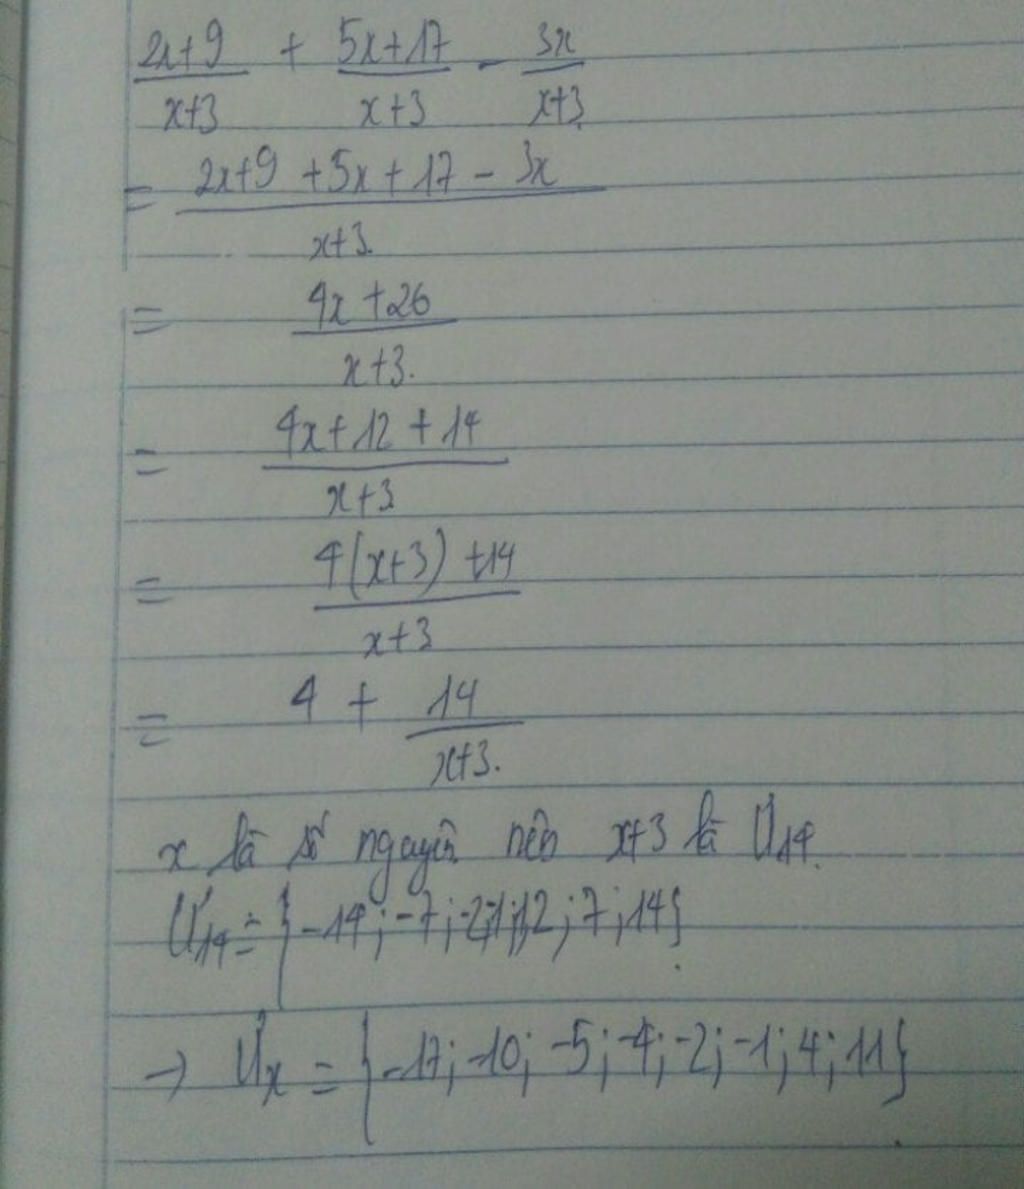 2x+9/x+3 + 5x+17/x+3 - 3x/x+3
= 2x+9+5x+17-3x/x+3
= 4x+26/x+3
= 4x+12+14/x+3
= 4(x+3)+14/x+3
= 4 + 14/x+3
x là số nguyên nên x+3 là Ư14
Ư14 = {-14; -7; -2; -1; 1; 2; 7; 14}
→ Ưx = {-17; -10; -5; -4; -2; -1; 4; 11}